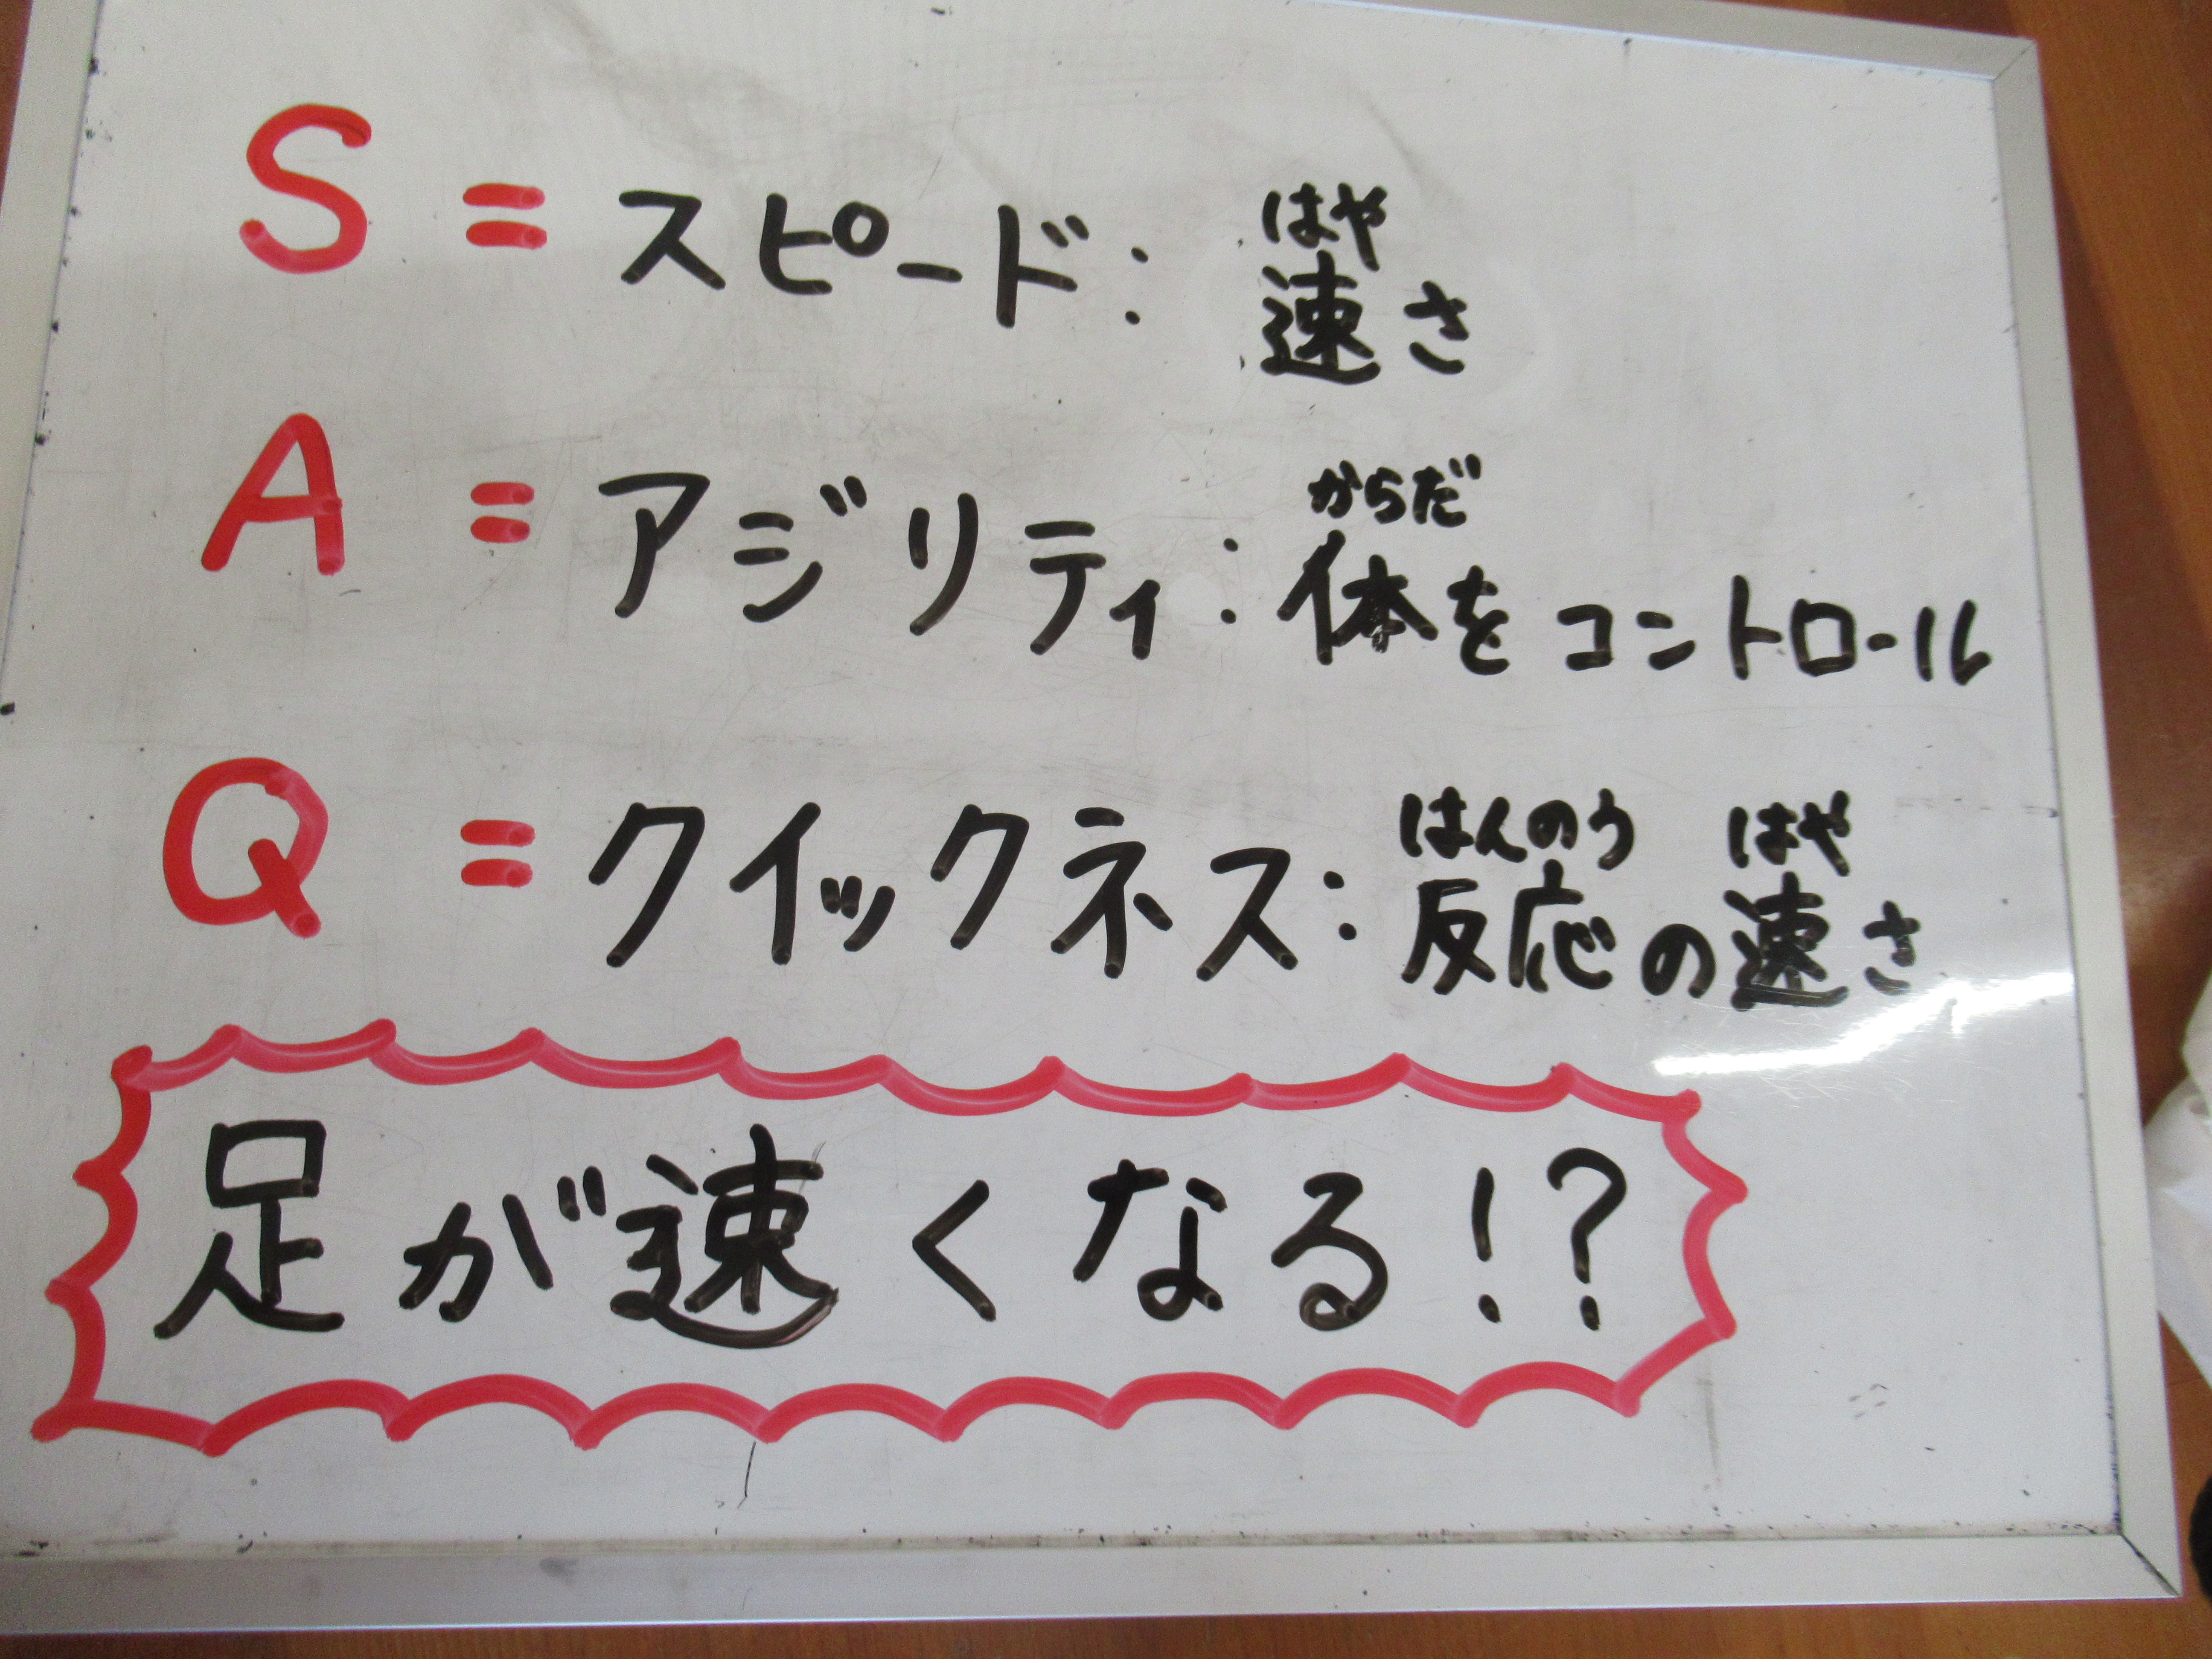 はや
S = スピード: 速さ
からだ
A = アジリティ: 体をコントロール
はんのう はや
Q = クイックネス: 反応の速さ
足が速くなる!?